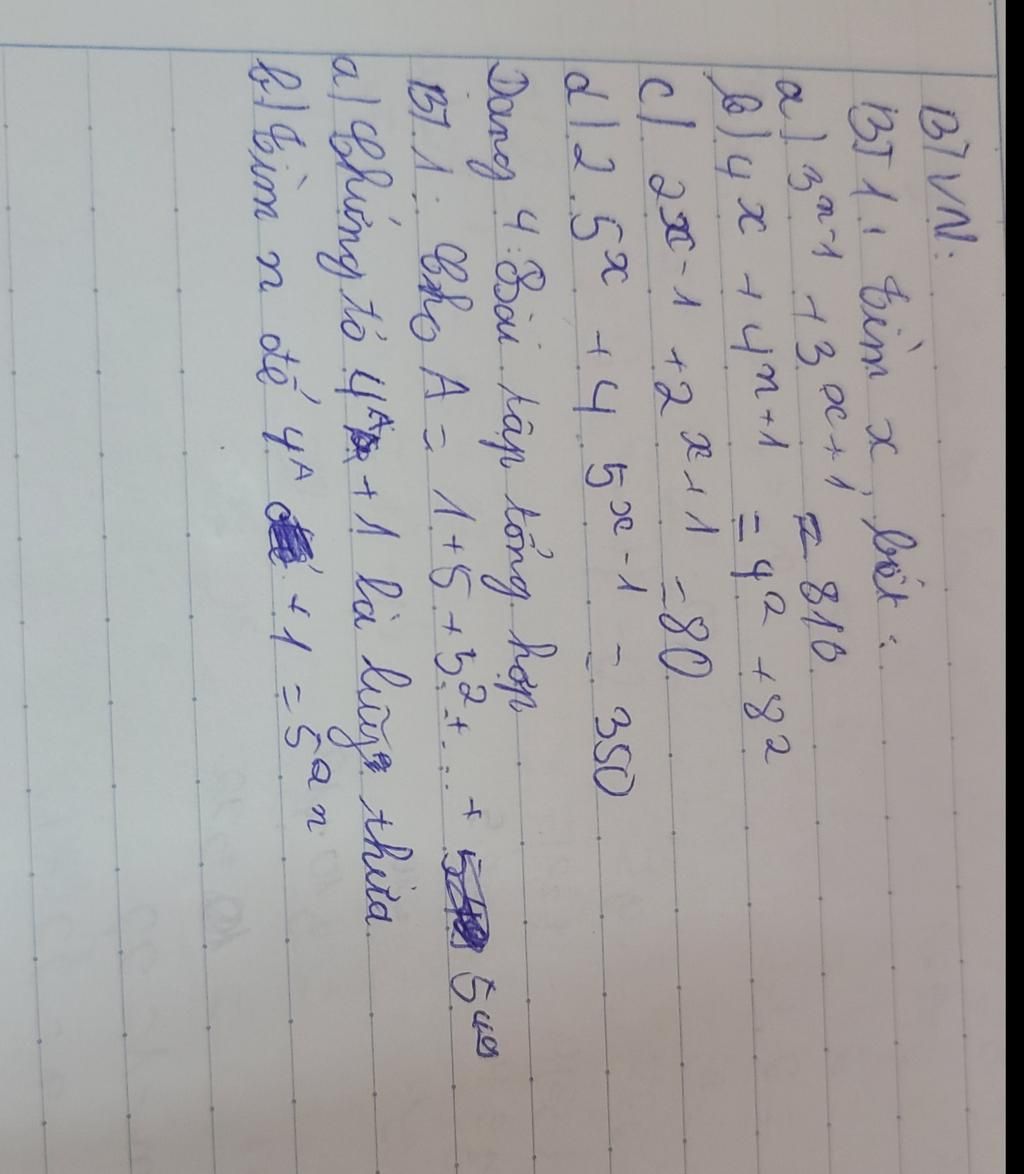 BTVN.
BT1. Tìm x, biết:
a) 3ˣ⁻¹ + 3ˣ⁺¹ = 810
b) 4x + 4ˣ⁺¹ = 4² + 8²
c) 2x-1 + 2ˣ⁺¹ = 80
d) 2 . 5ˣ + 4 . 5ˣ⁻¹ = 350
Dạng 4: Bài tập tổng hợp
BT 1. Cho A = 1 + 5 + 5² + ... + 5⁴⁹
a) Chứng tỏ 4ᴬ + 1 là lũy thừa
b) Tìm n để 4ᴬ + 1 = 5²ⁿ